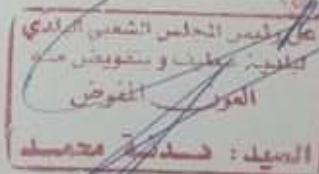 عن رئيس المجلس الشعبي البلدي
لبلدية سطيف و بتفويض منه
العون المفوض
السيد : محمد